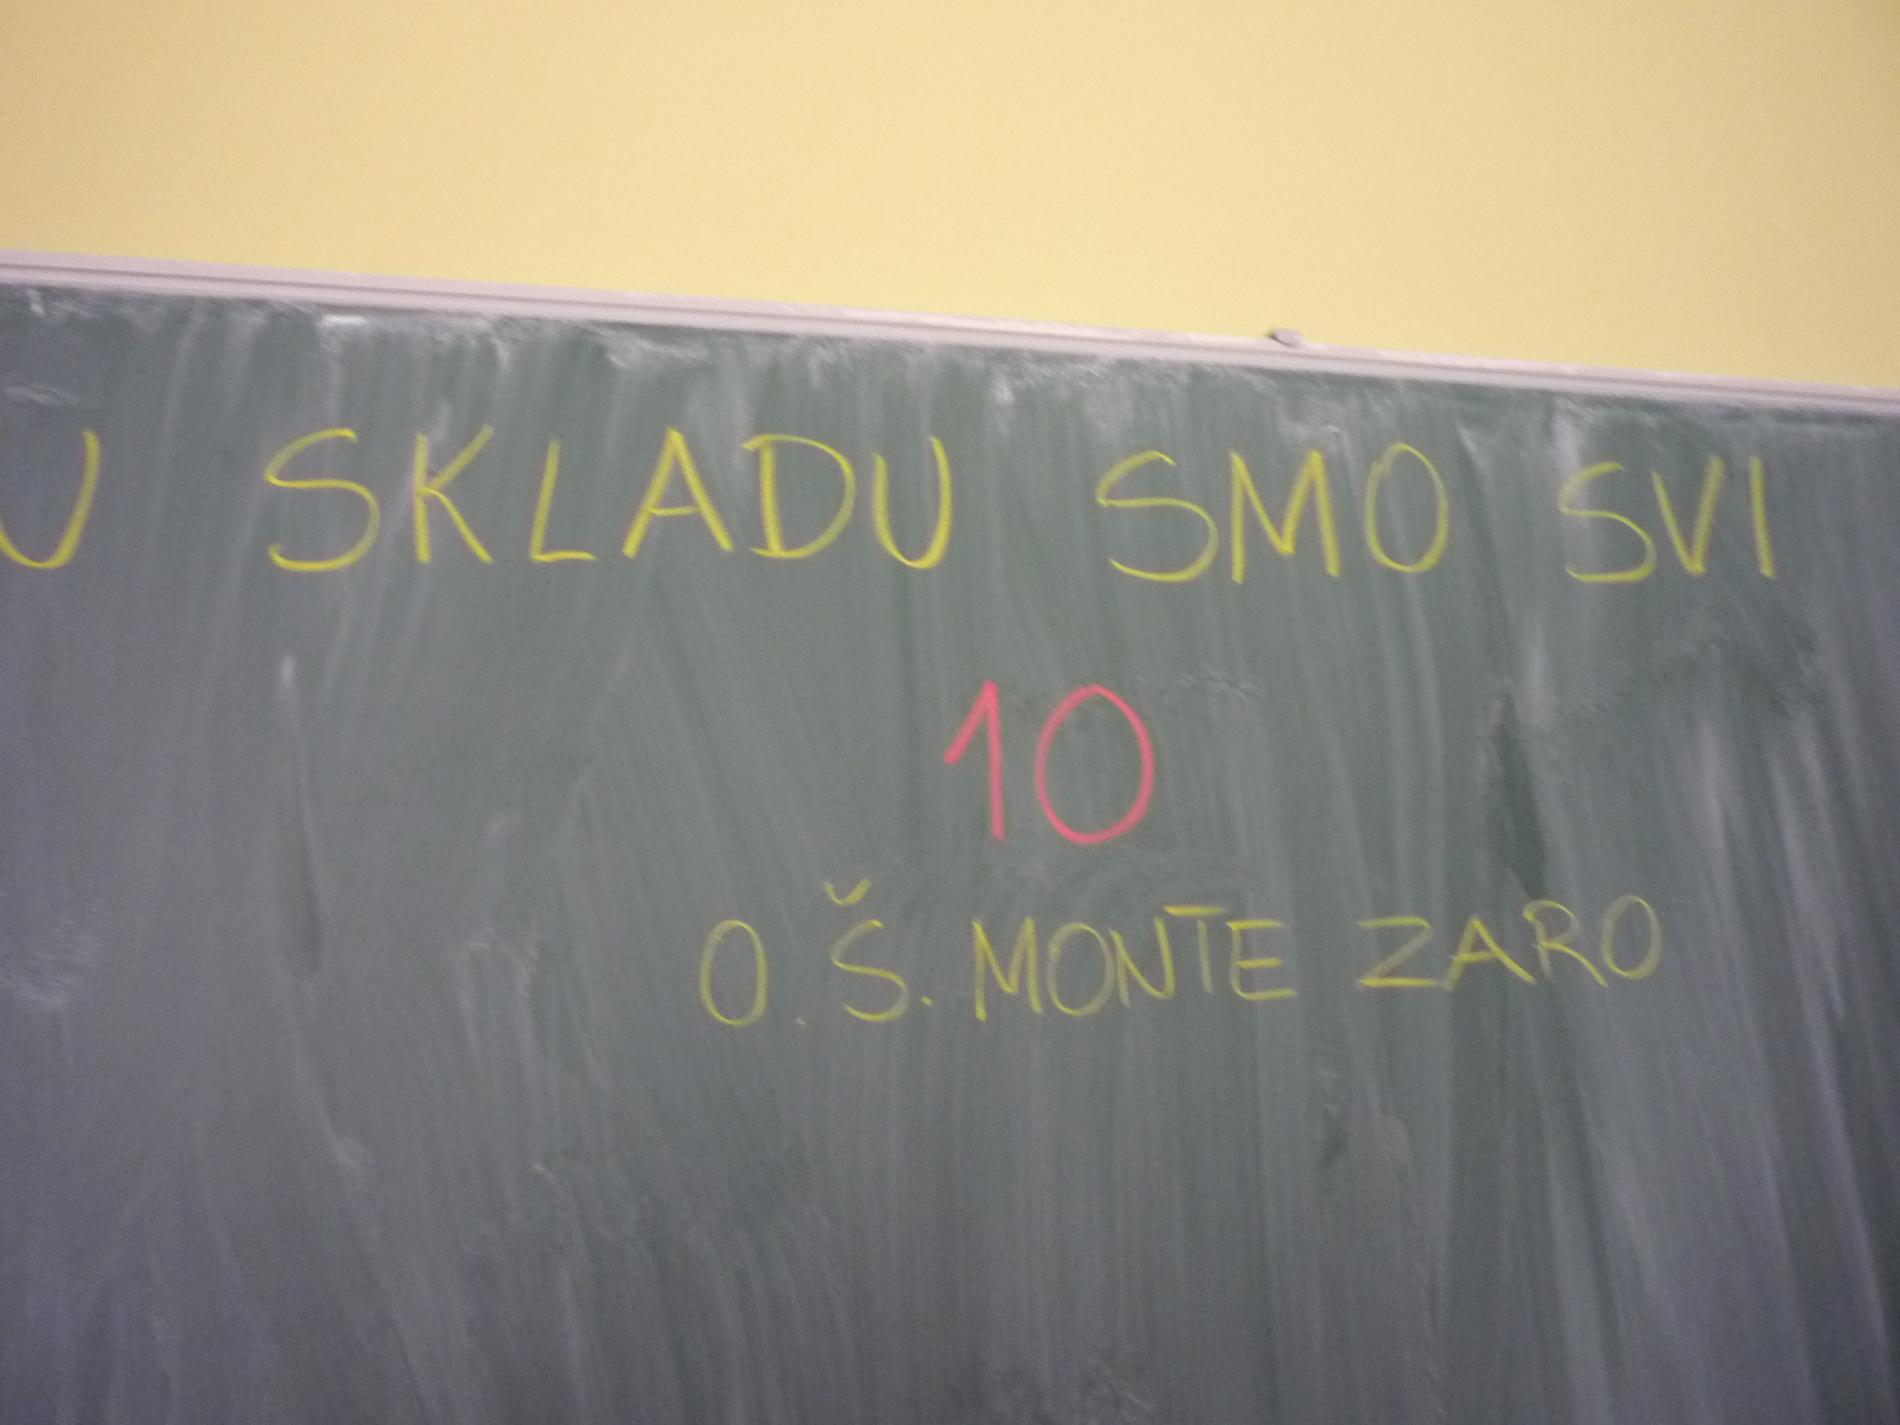 U SKLADU SMO SVI
10
O.Š. MONTE ZARO